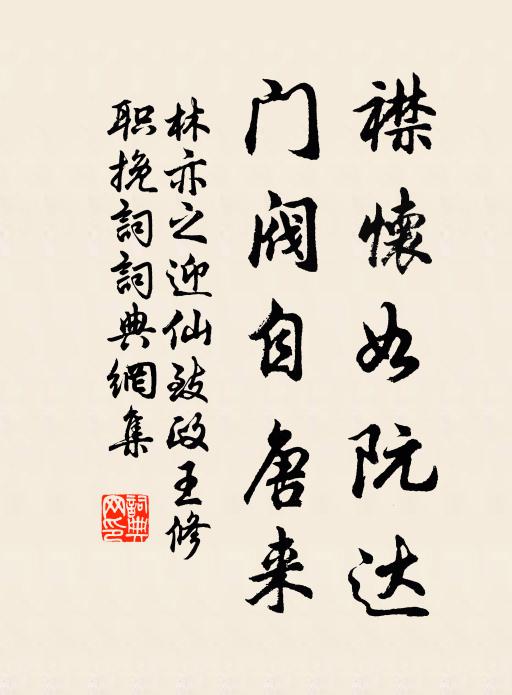 襟怀如阮达
门阀自唐来
林亦之迎仙致政王修
职挽詞詞典網集
詞典網印